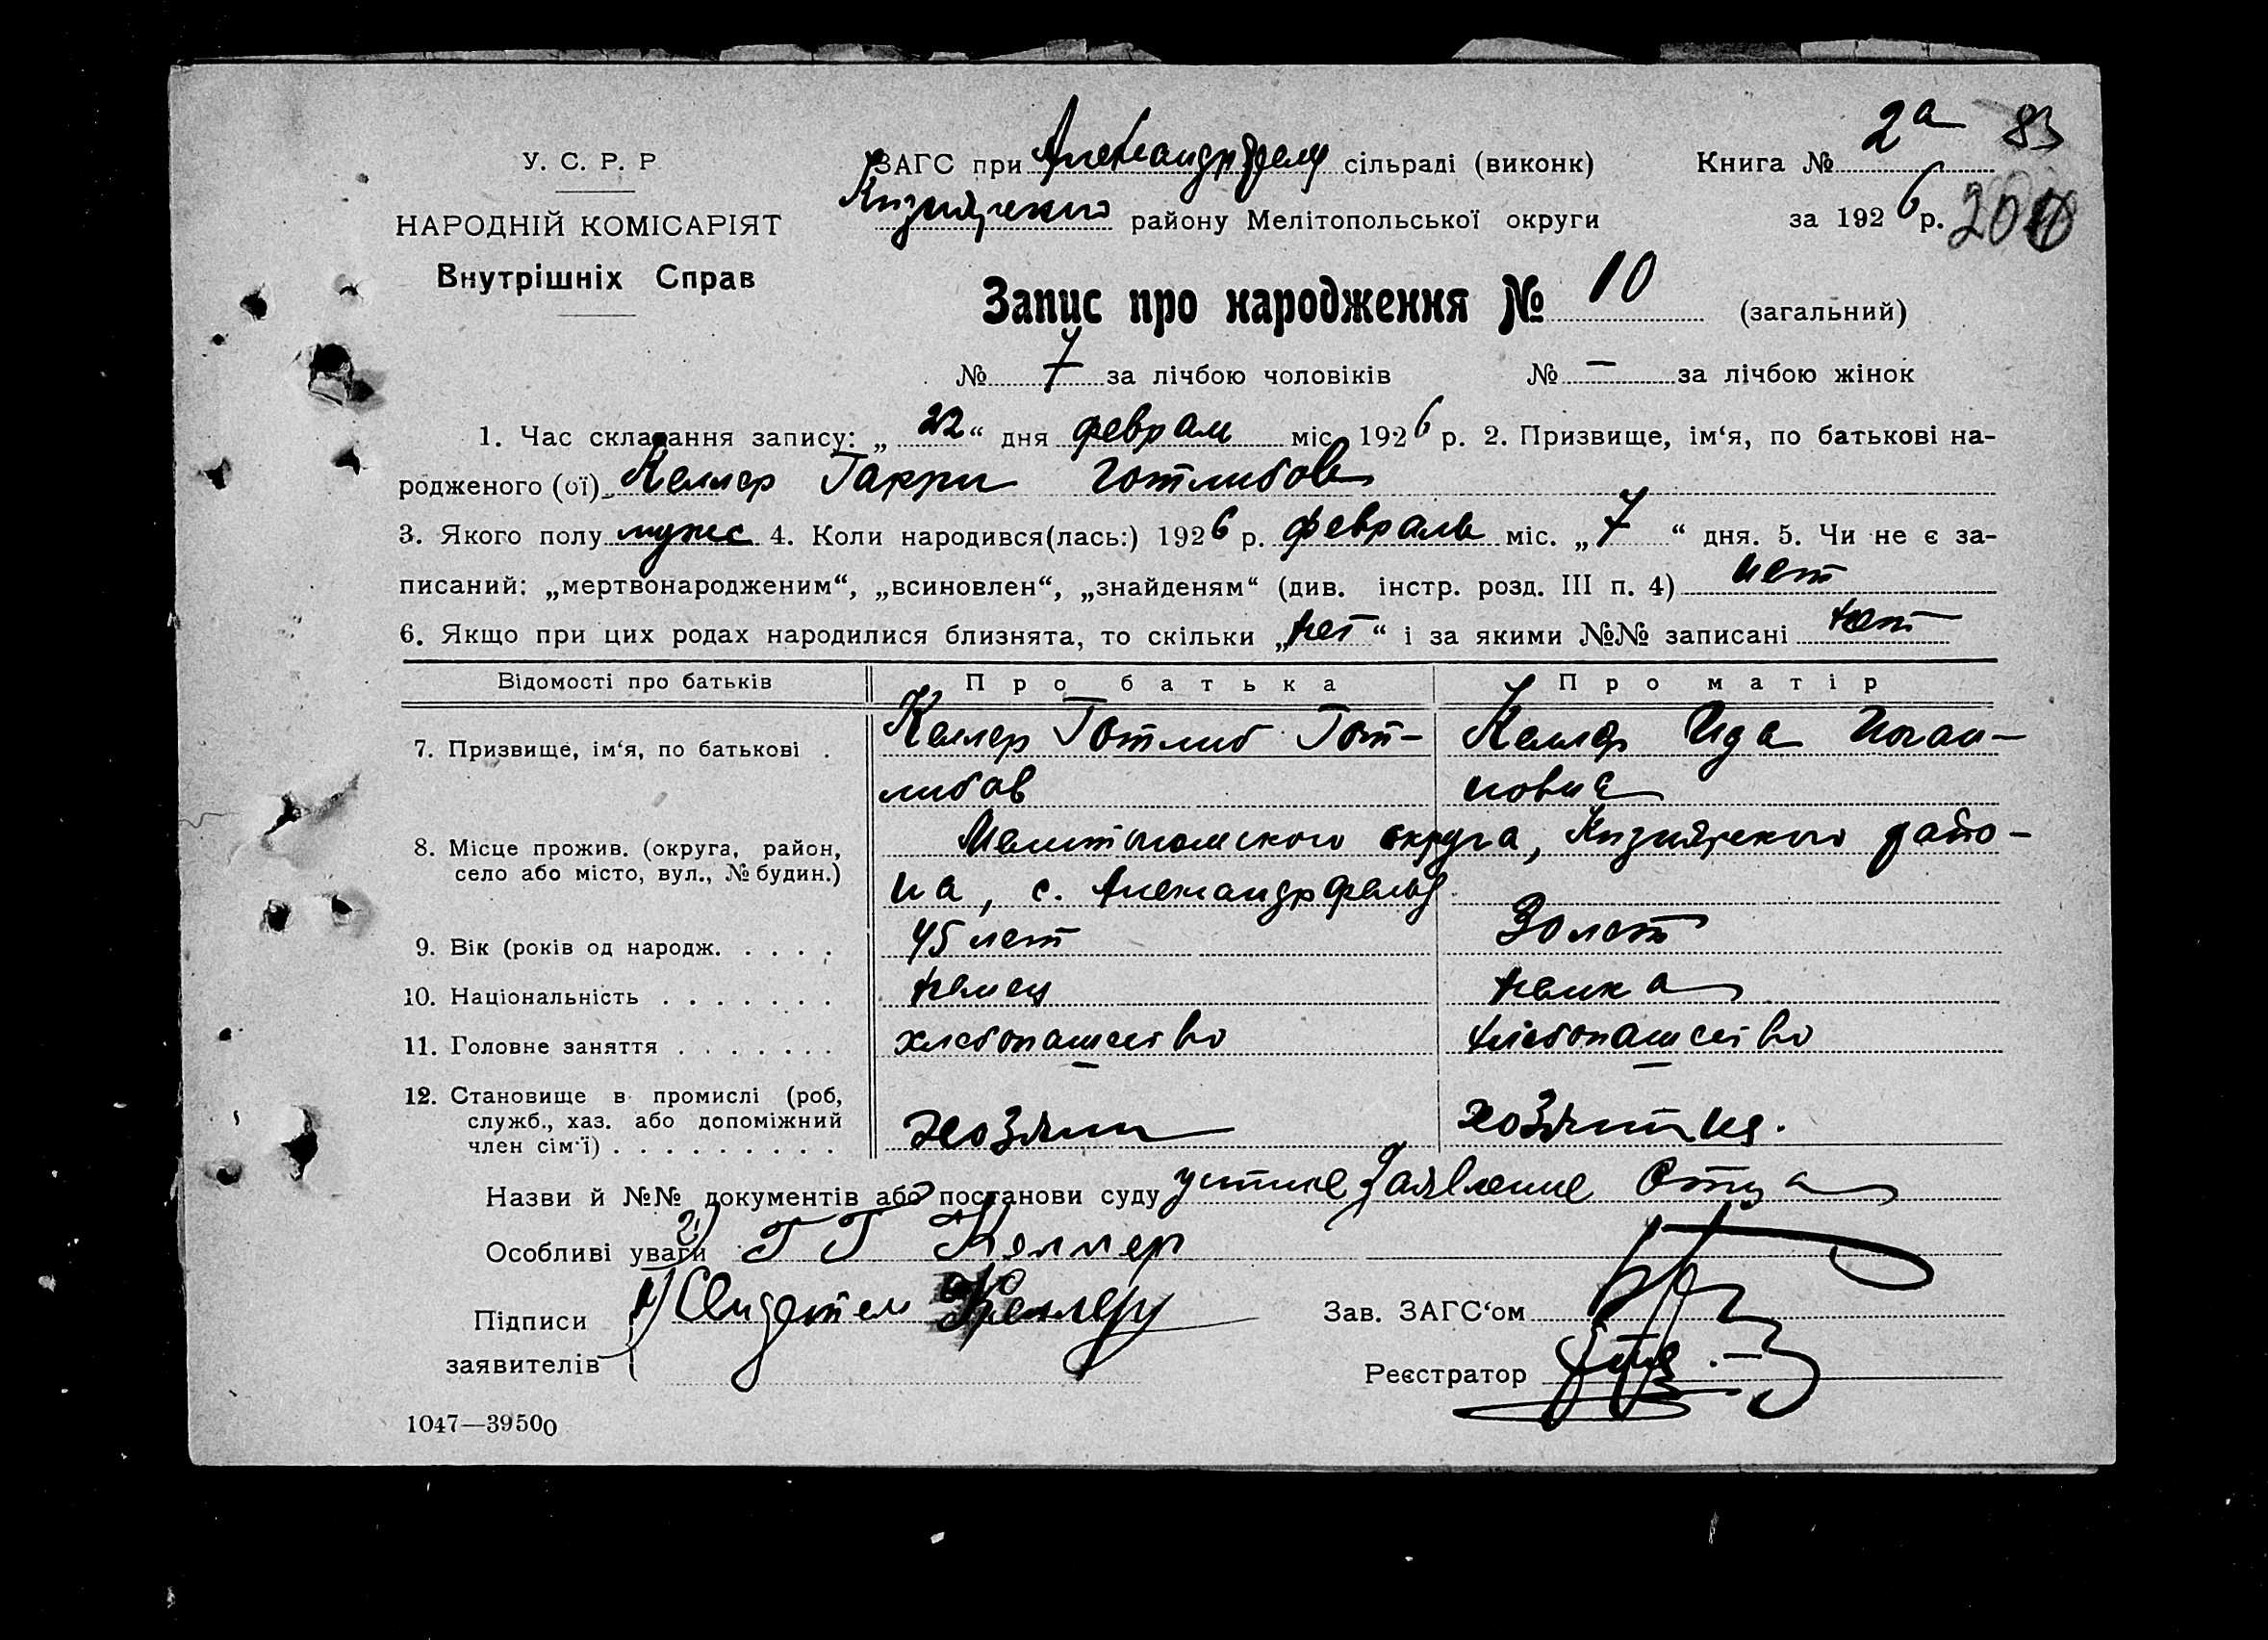 2а 83
У. С. Р. Р ЗАГС при Александрфельд сільраді (виконк) Книга №
НАРОДНІЙ КОМІСАРІЯТ Кизиярского району Мелітопольської округи за 1926 р. 200
Внутрішніх Справ
Запис про народження № 10 (загальний)
№ 7 за лічбою чоловіків № — за лічбою жінок
1. Час складання запису: „22“ дня феврал міс. 1926 р. 2. Призвище, ім‘я, по батькові на-
родженого (ої) Келлер Гарри Готлибов
3. Якого полу мужс 4. Коли народився(лась:) 1926 р. февраль міс. „7“ дня. 5. Чи не є за-
писаний: „мертвонародженим“, „всиновлен“, „знайденям“ (див. інстр. розд. III п. 4) нет
6. Якщо при цих родах народилися близнята, то скільки „нет“ і за якими №№ записані нет
Відомості про батьків Про батька Про матір
7. Призвище, ім‘я, по батькові . Келлер Готлиб Гот- Келлер Ида Иоган-
либов новна
8. Місце прожив. (округа, район, село або місто, вул., № будин.) Мелитопольского округа, Кизиярского райо-
на, с. Александрфельд
9. Вік (років од народж. . . . . 45 лет 30 лет
10. Національність . . . . . . . немец немка
11. Головне заняття . . . . . . . хлебопашество хлебопашество
12. Становище в промислі (роб,
служб., хаз. або допоміжний
член сім‘ї) . . . . . . . . . хозяин хозяйка.
Назви й №№ документів або постанови суду устное заявление отца
Особливі уваги 2) Г Г Келлер
Підписи 1) Свидетель Келлер Зав. ЗАГС‘ом
заявителів Реєстратор
1047—39500